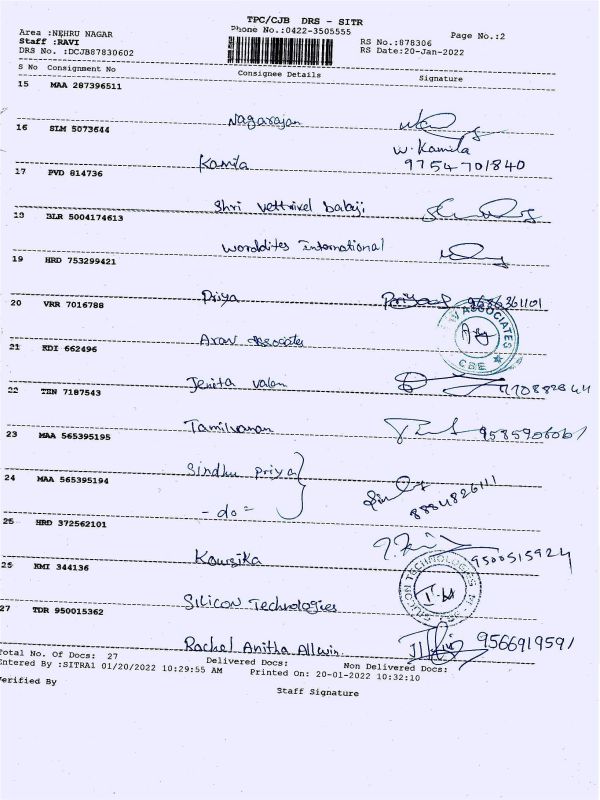 TPC/CJB DRS - SITR
Area :NEHRU NAGAR Phone No.:0422-3505555 Page No.:2
Staff :RAVI RS No.:878306
DRS No. :DCJB87830602 RS Date:20-Jan-2022
S No Consignment No Consignee Details Signature
15 MAA 287396511
Nagarajan
16 SLM 5073644 W. Kamila
Kamila 9754701840
17 PVD 814736
Shri Vettrivel balaji
18 BLR 5004174613
Worlddites International
19 HRD 753299421
Priya Priya 9686361101
20 VRR 7016788
Arav Associates ASSOCIATES CBE
21 KDI 662496
Jenita Valan
22 TEN 7187543
Tamilvanan
23 MAA 565395195
Sindhu priya
24 MAA 565395194 8884826111
- do =
25 HRD 372562101
Kowsika 9500515924
26 KMI 344136
SILICON Technologies SILICON TECHNOLOGIES
27 TDR 950015362
Rachel Anitha Allwin 9566919591
Total No. Of Docs: 27 Delivered Docs: Non Delivered Docs:
Entered By :SITRA1 01/20/2022 10:29:55 AM Printed On: 20-01-2022 10:32:10
Verified By Staff Signature